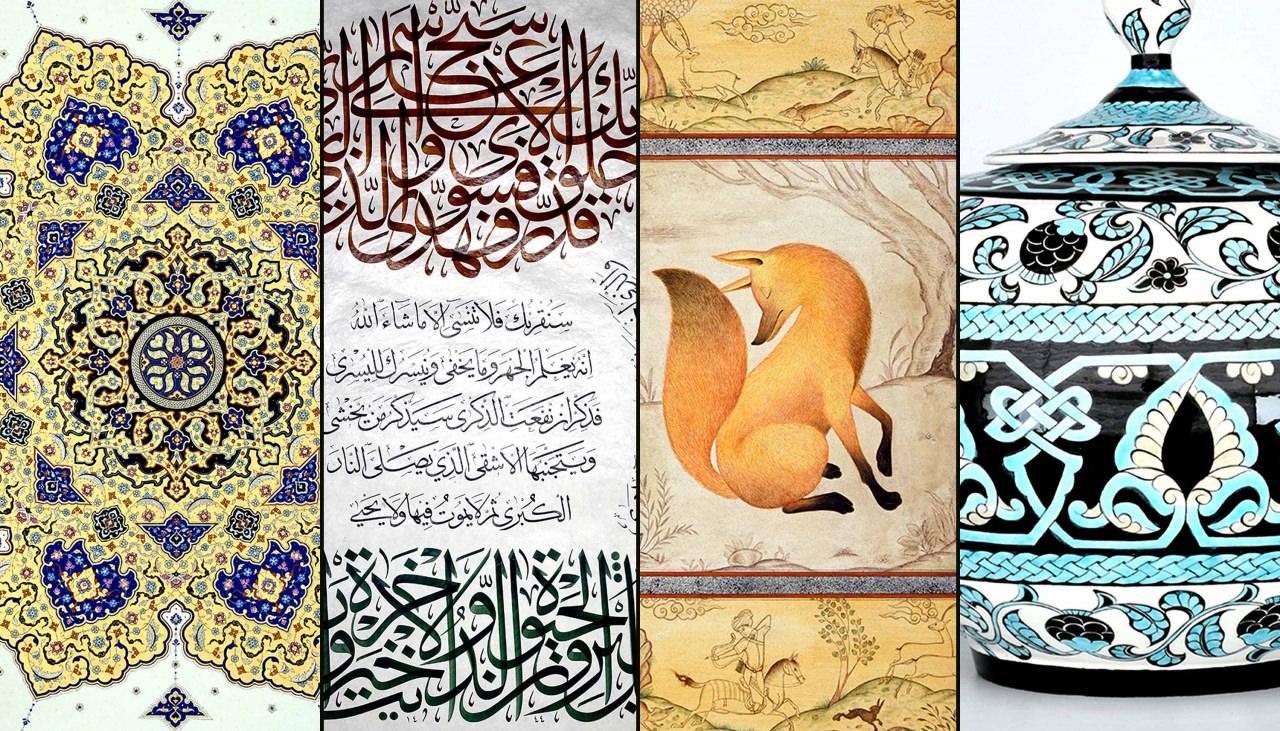 سبح اسم ربك الاعلى
الذي خلق فسوى
والذي قدر فهدى
سنقرئك فلا تنسى الا ما شاء الله
انه يعلم الجهر وما يخفى ونيسرك لليسرى
فذكر ان نفعت الذكرى سيذكر من يخشى
ويتجنبها الاشقى الذي يصلى النار
الكبرى ثم لا يموت فيها ولا يحيى
بل تؤثرون الحيوة الدنيا والاخرة خير